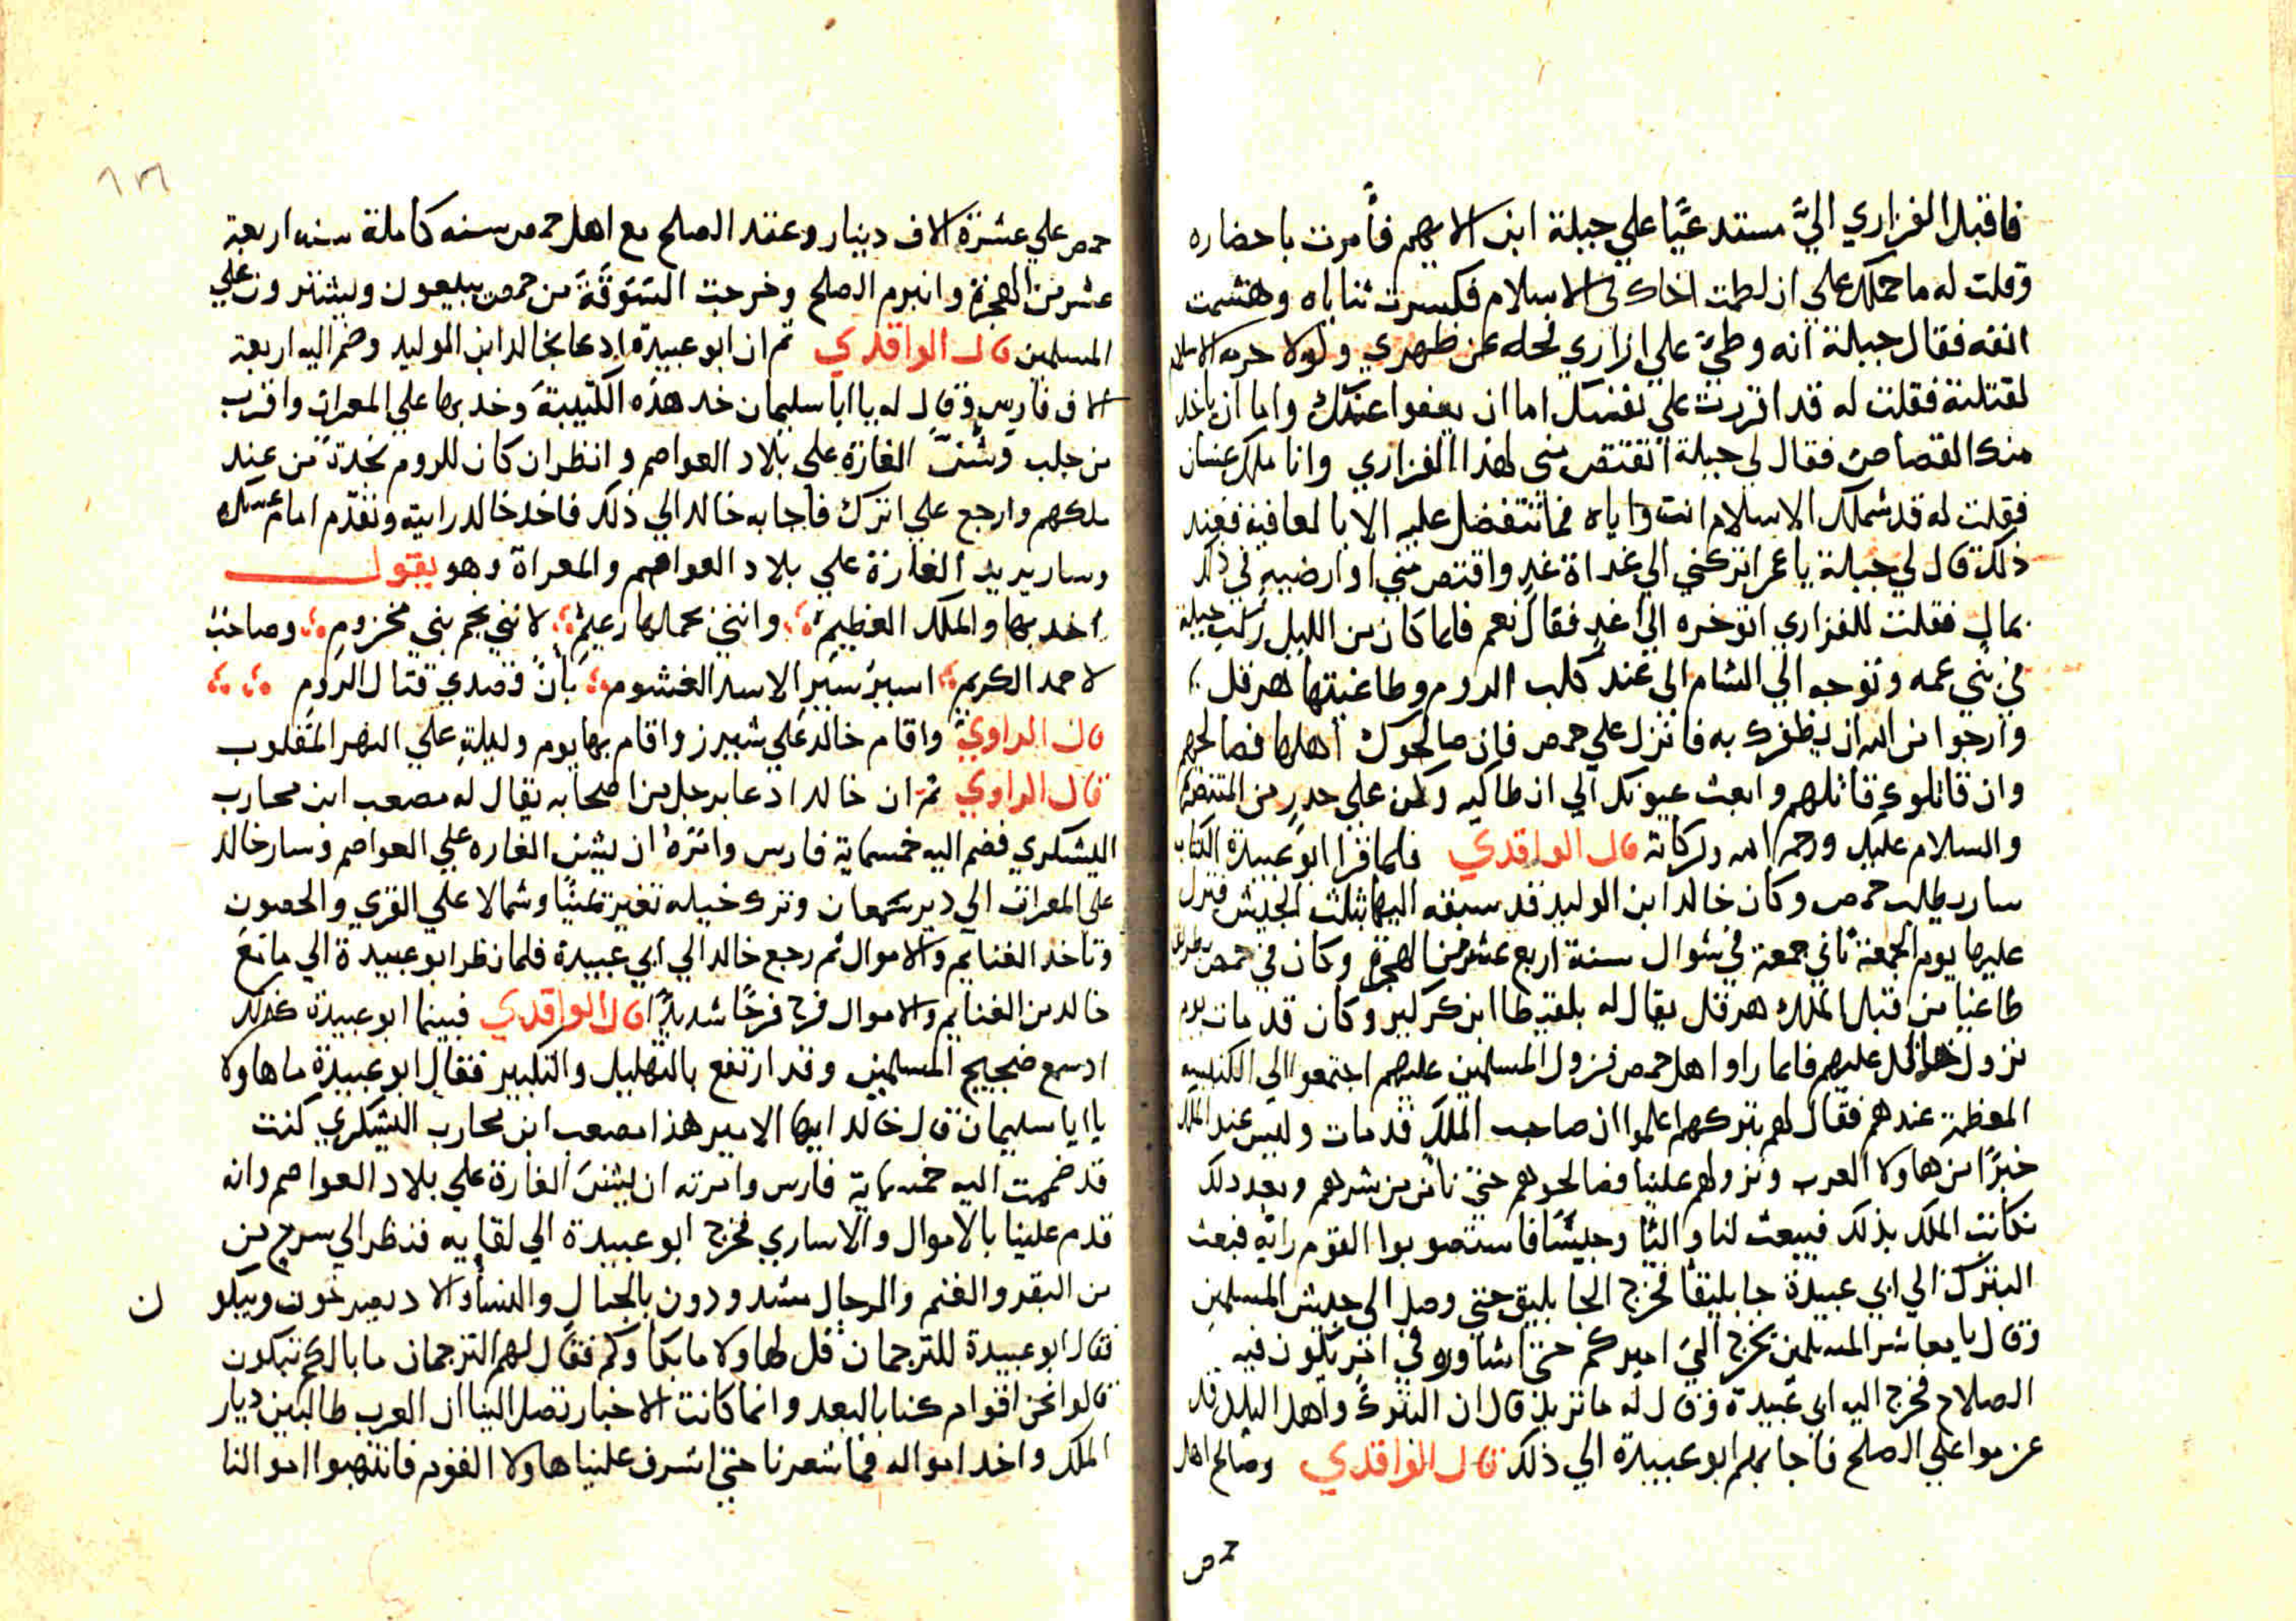 فاقبل الفزاري اليَّ مستعديًا علي جبلة ابن الايهم فأمرت باحضاره
وقلت له ما حملك علي ان لطمت اخاك في الاسلام فكسرت ثناياه وهشمت
انفه فقال جبلة انه وطيَ علي ازاري فحله عن ظهري ولولا حرمه الاسلام
لقتلته فقلت له قد اقررت علي نفسك اما ان يعفوا عنك واما ان ياخد
منك القصاص فقال لي جبلة اتقتص مني لهذا الفزاري وانا ملك غسان
فقلت له قد شملك الاسلام انت واياه فما تتفضل عليه الا بالعافية فعند
ذلك قال لي جبلة يا عمر اتركني الي غداة غدٍ واقتص مني او ارضيه في ذلك
بمال فقلت للفزاري اتوخره الي غدٍ فقال نعم فلما كان من الليل ركب جبلة
في بني عمه وتوجه الي الشام الي عند كلب الروم وطاغيتها هرقل
وارجوا من الله ان يظفرك به فانزل علي حمص فان صالحوك اهلها فصالحهم
وان قاتلوك قاتلهم وابعث عيونك الي انطاكيه وكن علي حدرٍ من المتنصره
والسلام عليك ورحمه الله وبركاته قال الواقدي فلما قرا ابو عبيدة الكتاب
سار يطلب حمص وكان خالد ابن الوليد قد سبقه اليها بثلث الجيش فنزل
عليها يوم الجمعة ثاني جمعة في شوال سنة اربع عشر من الهجرة وكان في حمص بطريقا
طاغيا من قبل الملك هرقل يقال له بلقيطا ابن كركير وكان قد مات يوم
نزول خالد عليهم فلما راوا اهل حمص نزول المسلمين عليهم اجتمعوا الي الكنيسه
المعظمة عندهم فقال لهم بتركهم اعلموا ان صاحب الملك قد مات وليس عند الملك
خبرًا من هاولا العرب ونزولهم علينا فصالحوهم حتي نامن من شرهم وبعد دلك
نكاتب الملك بذلك فيبعث لنا واليًا وجيشًا فاستصوبوا القوم رايه فبعث
البترك الي ابي عبيدة جاثليقا فخرج الجاثليق حتي وصل الي جيش المسلمين
وقال يا معاشر المسلمين يخرج اليَ اميركم حتي اشاوره في امر يكون فيه
الصلاح فخرج اليه ابي عبيدة وقال له ما تريد قال ان البترك واهل البلد قد
عزموا علي الصلح فاجابهم ابو عبيدة الي ذلك قال الواقدي وصالح اهل
حمص
١٢٦
حمص علي عشرة الاف دينار وعقد الصلح مع اهل حمص سنه كاملة سنه اربعة
عشر من الهجرة وانبرم الصلح وخرجت السَوَقَة من حمص يبيعون ويشترون علي
المسلمين قال الواقدي ثم ان ابو عبيدة ادعا بخالد ابن الوليد وضم اليه اربعة
الاف فارس وقال له يا ابا سليمان خد هذه الكتيبة وخد بها علي المعرات واقرب
من حلب وشنّ الغارة علي بلاد العواصم وانظر ان كان للروم نجدة من عند
ملكهم وارجع علي اترك فاجابه خالد الي ذلك فاخد خالد رايته وتقدم امام عسكره
وسار يريد الغارة علي بلاد العواصم والمعراة وهو يقول
اخد بها والملك العظيم وانني بحملها زعيم لانني نجم بني مخزوم وصاحب
لاحمد الكريم اسير سير الاسد الغشوم بأن قصدي قتال الروم
قال الراوي واقام خالد علي شيرز واقام بها يوم وليلةٍ علي النهر المقلوب
قال الراوي ثم ان خالد ادعا برجل من اصحابه يقال له مصعب ابن محارب
اليشكري فضم اليه خمسماية فارس وامره ان يشن الغاره علي العواصم وسار خالد
علي المعرات الي دير سمعان وترك خيله تغير يمينًا وشمالا علي القري والحصون
وتاخد الغنايم والاموال ثم رجع خالد الي ابي عبيدة فلما نظر ابو عبيدة الي ما مع
خالد من الغنايم والاموال فرح فرحًا شديدًا قال الواقدي فبينما ابو عبيدة كذلك
ادسمع ضجيج المسلمين وقد ارتفع بالتهليل والتكبير فقال ابو عبيدة ما هاولا
يا ابا سليمان قال خالد ايها الامير هذا مصعب ابن محارب اليشكري كنت
قد ضممت اليه خمسماية فارس وامرته ان يشنَ الغارة علي بلاد العواصم وانه
قدم علينا بالاموال والاساري فخرج ابو عبيدة الي لقايه فنظر الي سرح من
من البقر والغنم والرجال مشدودون بالحبال والنسا والاد يصرخون ويبكون
فقال ابو عبيدة للترجمان قل لهاولا ما بكاوكم فقال لهم الترجمان ما بالكم تبكون
قالوا نحن اقوام كنا بالبعد وانما كانت الاخبار تصل الينا ان العرب طالبين ديار
الملك واخد امواله فما شعرنا حتي اشرف علينا هاولا القوم فانتهبوا اموالنا